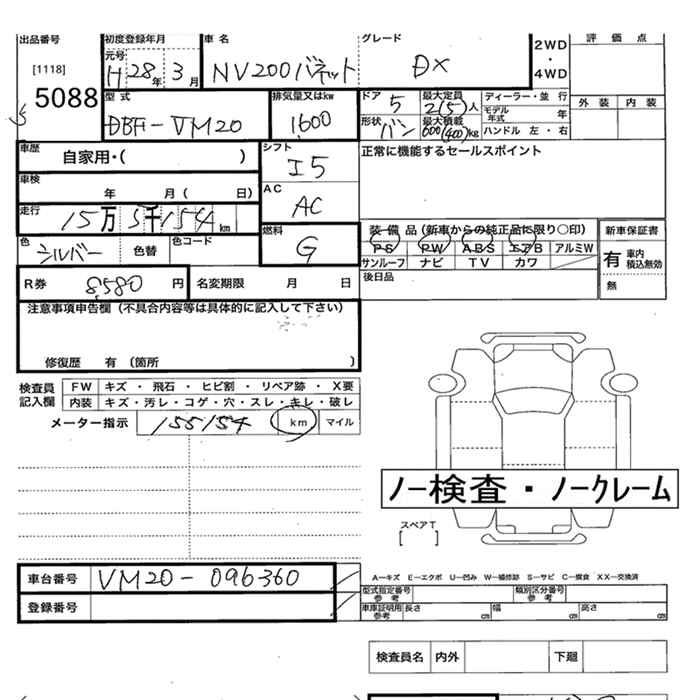 出品番号 初度登録年月 車名 グレード 評価点
[1118] 元号 H 28年 3月 NV200バネット DX 2WD・4WD
5088 型式 排気量又はkw ドア 5 最大定員 2(5)人 ディーラー・並行 外装 内装
DBF-VM20 1600 形状 バン 最大積載 600(400)kg モデル年式 年
ハンドル 左・右
車歴 自家用・( ) シフト I5 正常に機能するセールスポイント
車検 年 月( 日) AC AC
走行 15万5千154km 装備品(新車からの純正品に限り○印) 新車保証書
色 シルバー 色替 色コード 燃料 G PS PW ABS エアB アルミW 有 車内積込無効
サンルーフ ナビ TV カワ
R券 8,580円 名変期限 月 日 後日品 無
注意事項申告欄(不具合内容等は具体的に記入して下さい)
修復歴 有(箇所 )
検査員記入欄 FW キズ・飛石・ヒビ割・リペア跡・X要
内装 キズ・汚レ・コゲ・穴・スレ・キレ・破レ
メーター指示 155154 km マイル
ノー検査・ノークレーム
スペアT
[ ]
車台番号 VM20-096360 A−キズ E−エクボ U−凹み W−補修跡 S−サビ C−腐食 XX−交換済
型式指定番号 参考 類別区分番号 参考
登録番号 車庫証明用参考 長さ cm 幅 cm 高さ cm
検査員名 内外 下廻